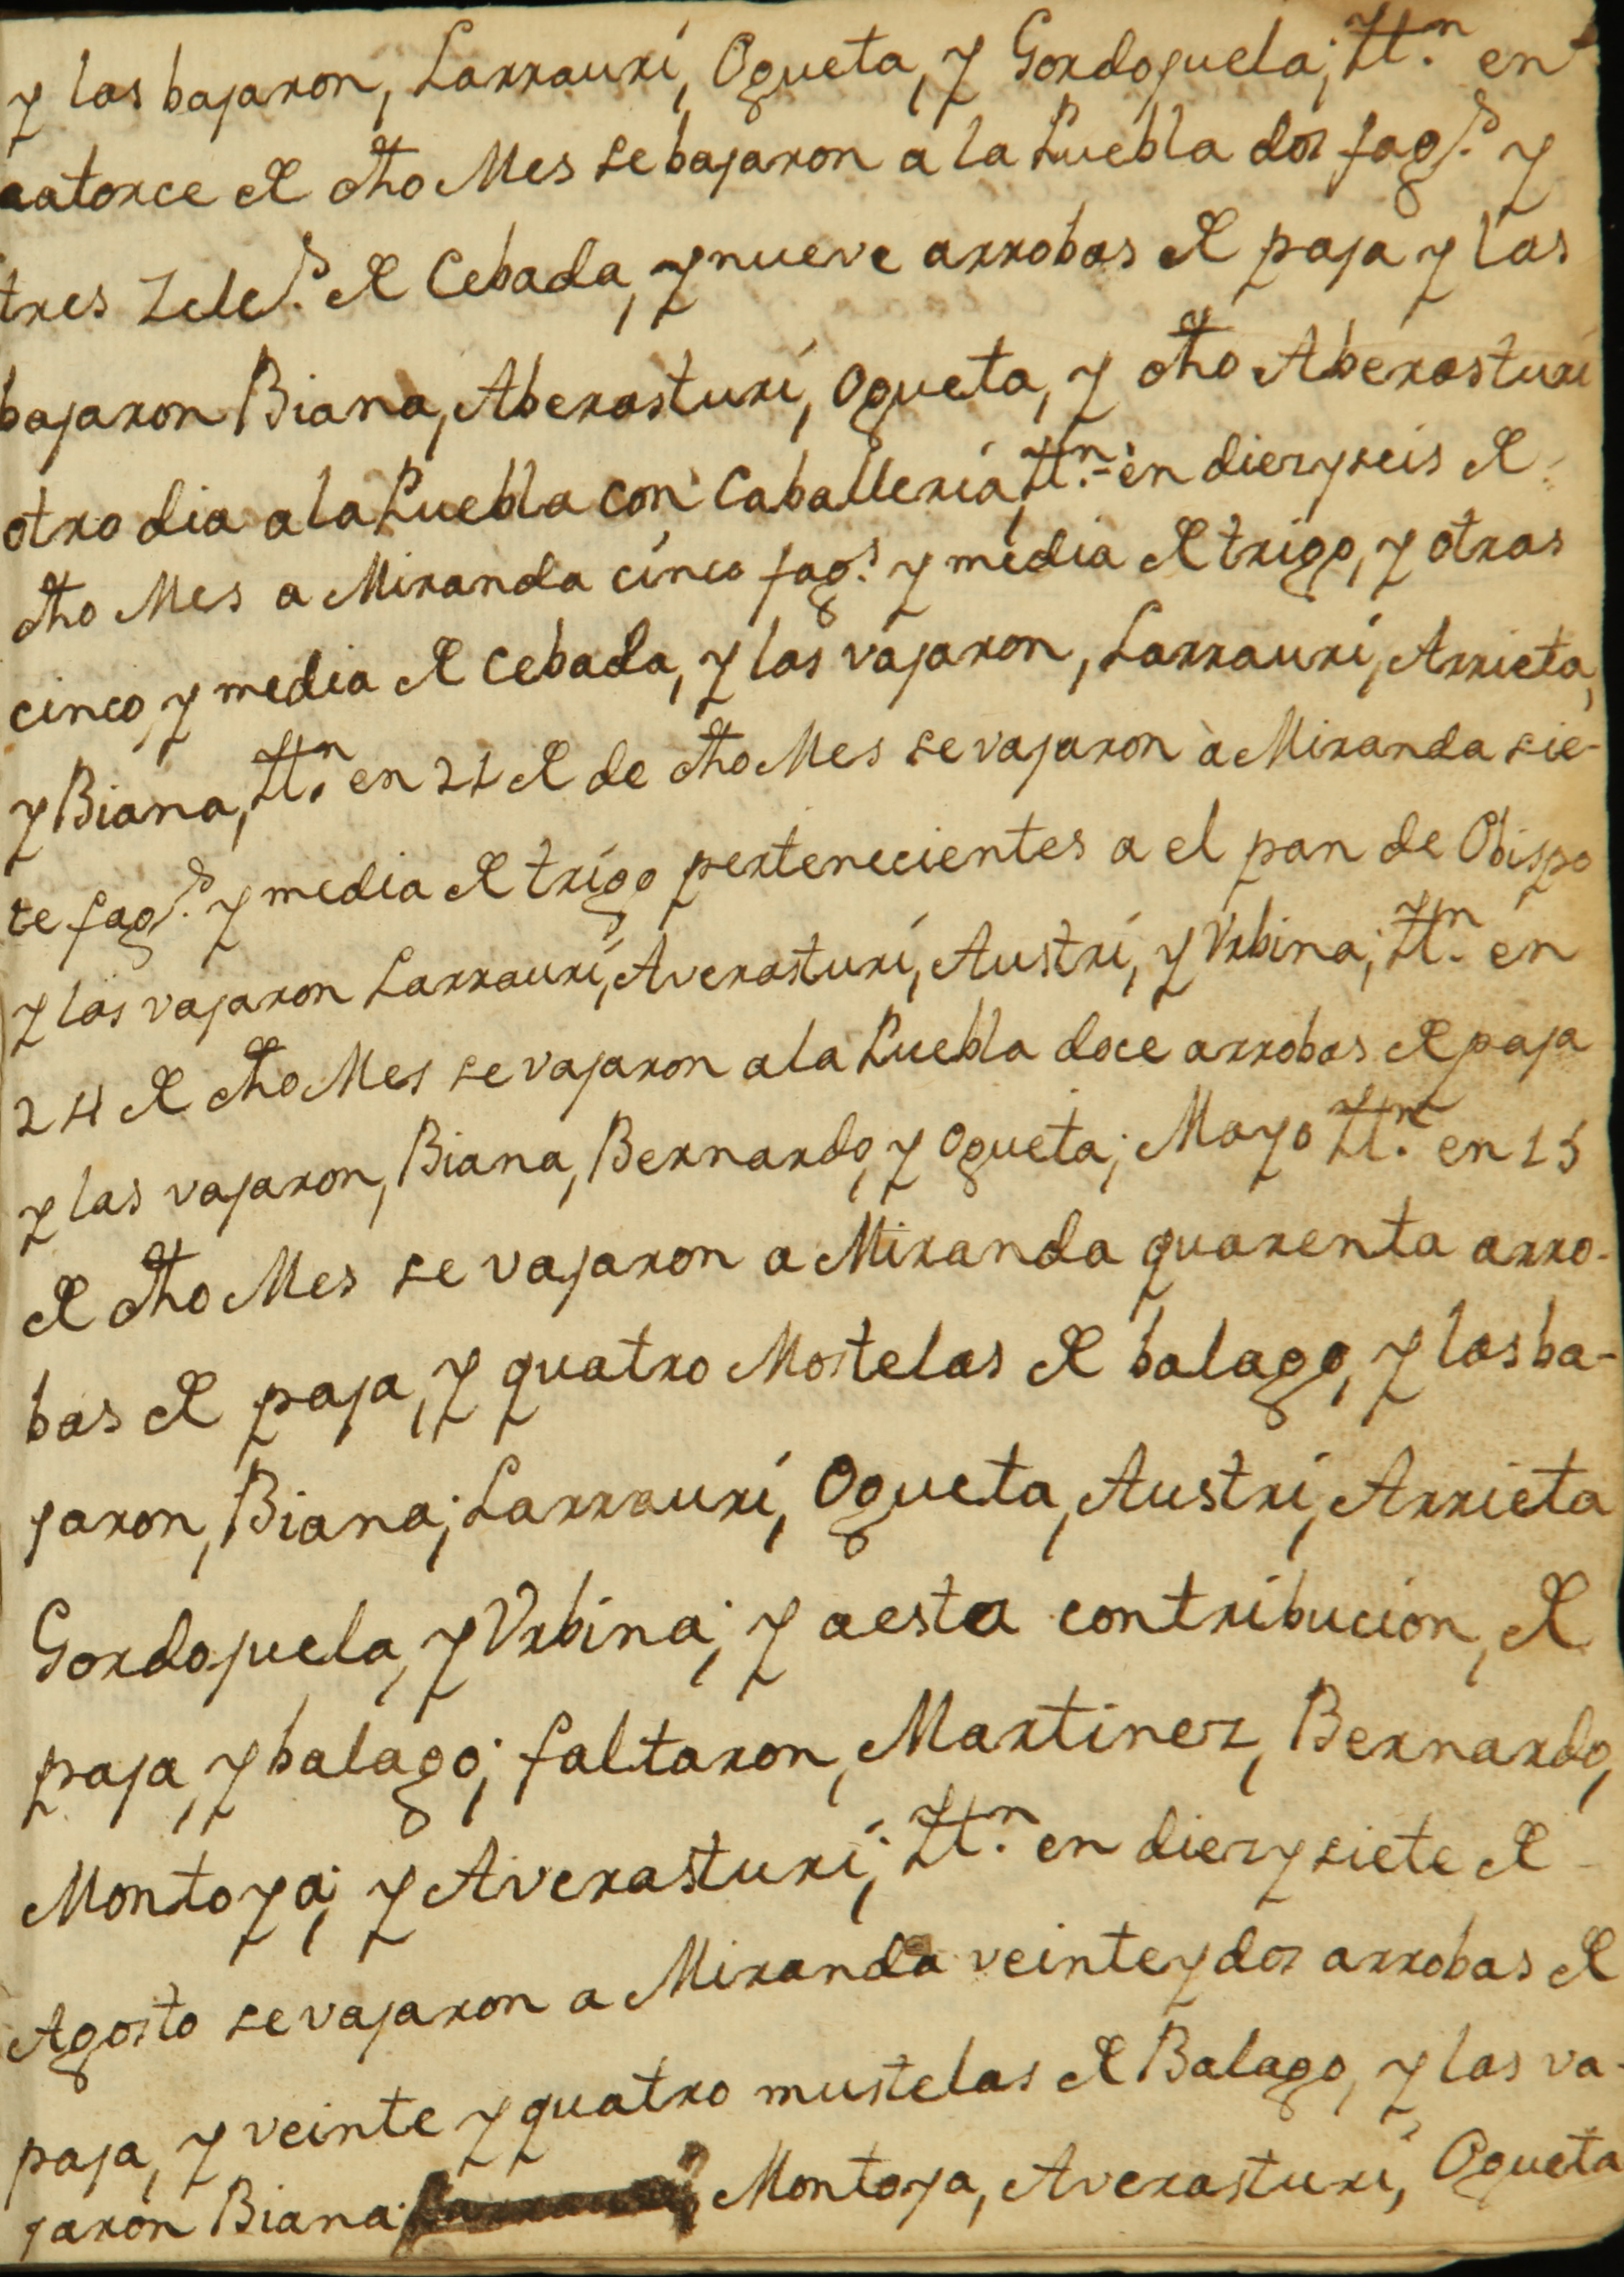 y las bajaron, Larrauri, Ogueta, y Gordojuela; Ytt.n en
catorce de dho Mes se bajaron a la Puebla dos fag.s y
tres Zele.s de Cebada, y nueve arrobas de paja y las
bajaron Biana, Aberasturi, Ogueta, y dho Aberasturi
otro dia a la Puebla con Caballeria, Ytt.n en diez y seis de
dho Mes a Miranda cinco fag.s y media de trigo, y otras
cinco, y media de Cebada, y las vajaron, Larrauri, Arrieta,
y Biana, Ytt.n en 21 de de dho Mes se vajaron à Miranda sie-
te fag.s y media de trigo pertenecientes a el pan de Obispo
y las vajaron Larrauri, Averasturi, Austri, y Vrbina; Ytt.n en
24 de dho Mes se vajaron a la Puebla doce arrobas de paja
y las vajaron, Biana, Bernardo, y Ogueta; Mayo Ytt.n en 15
de dho Mes se vajaron a Miranda quarenta arro-
bas de paja, y quatro Mostelas de balago, y las ba-
jaron, Biana; Larrauri, Ogueta, Austri, Arrieta
Gordojuela, y Vrbina; y a esta contribucion, de
paja, y balago; faltaron, Martinez, Bernardo,
Montoya; y Averasturi; Ytt.n en diez y siete de
Agosto se vajaron a Miranda veinte y dos arrobas de
paja, y veinte y quatro mustelas de Balago, y las va-
jaron Biana; Montoya, Averasturi, Ogueta